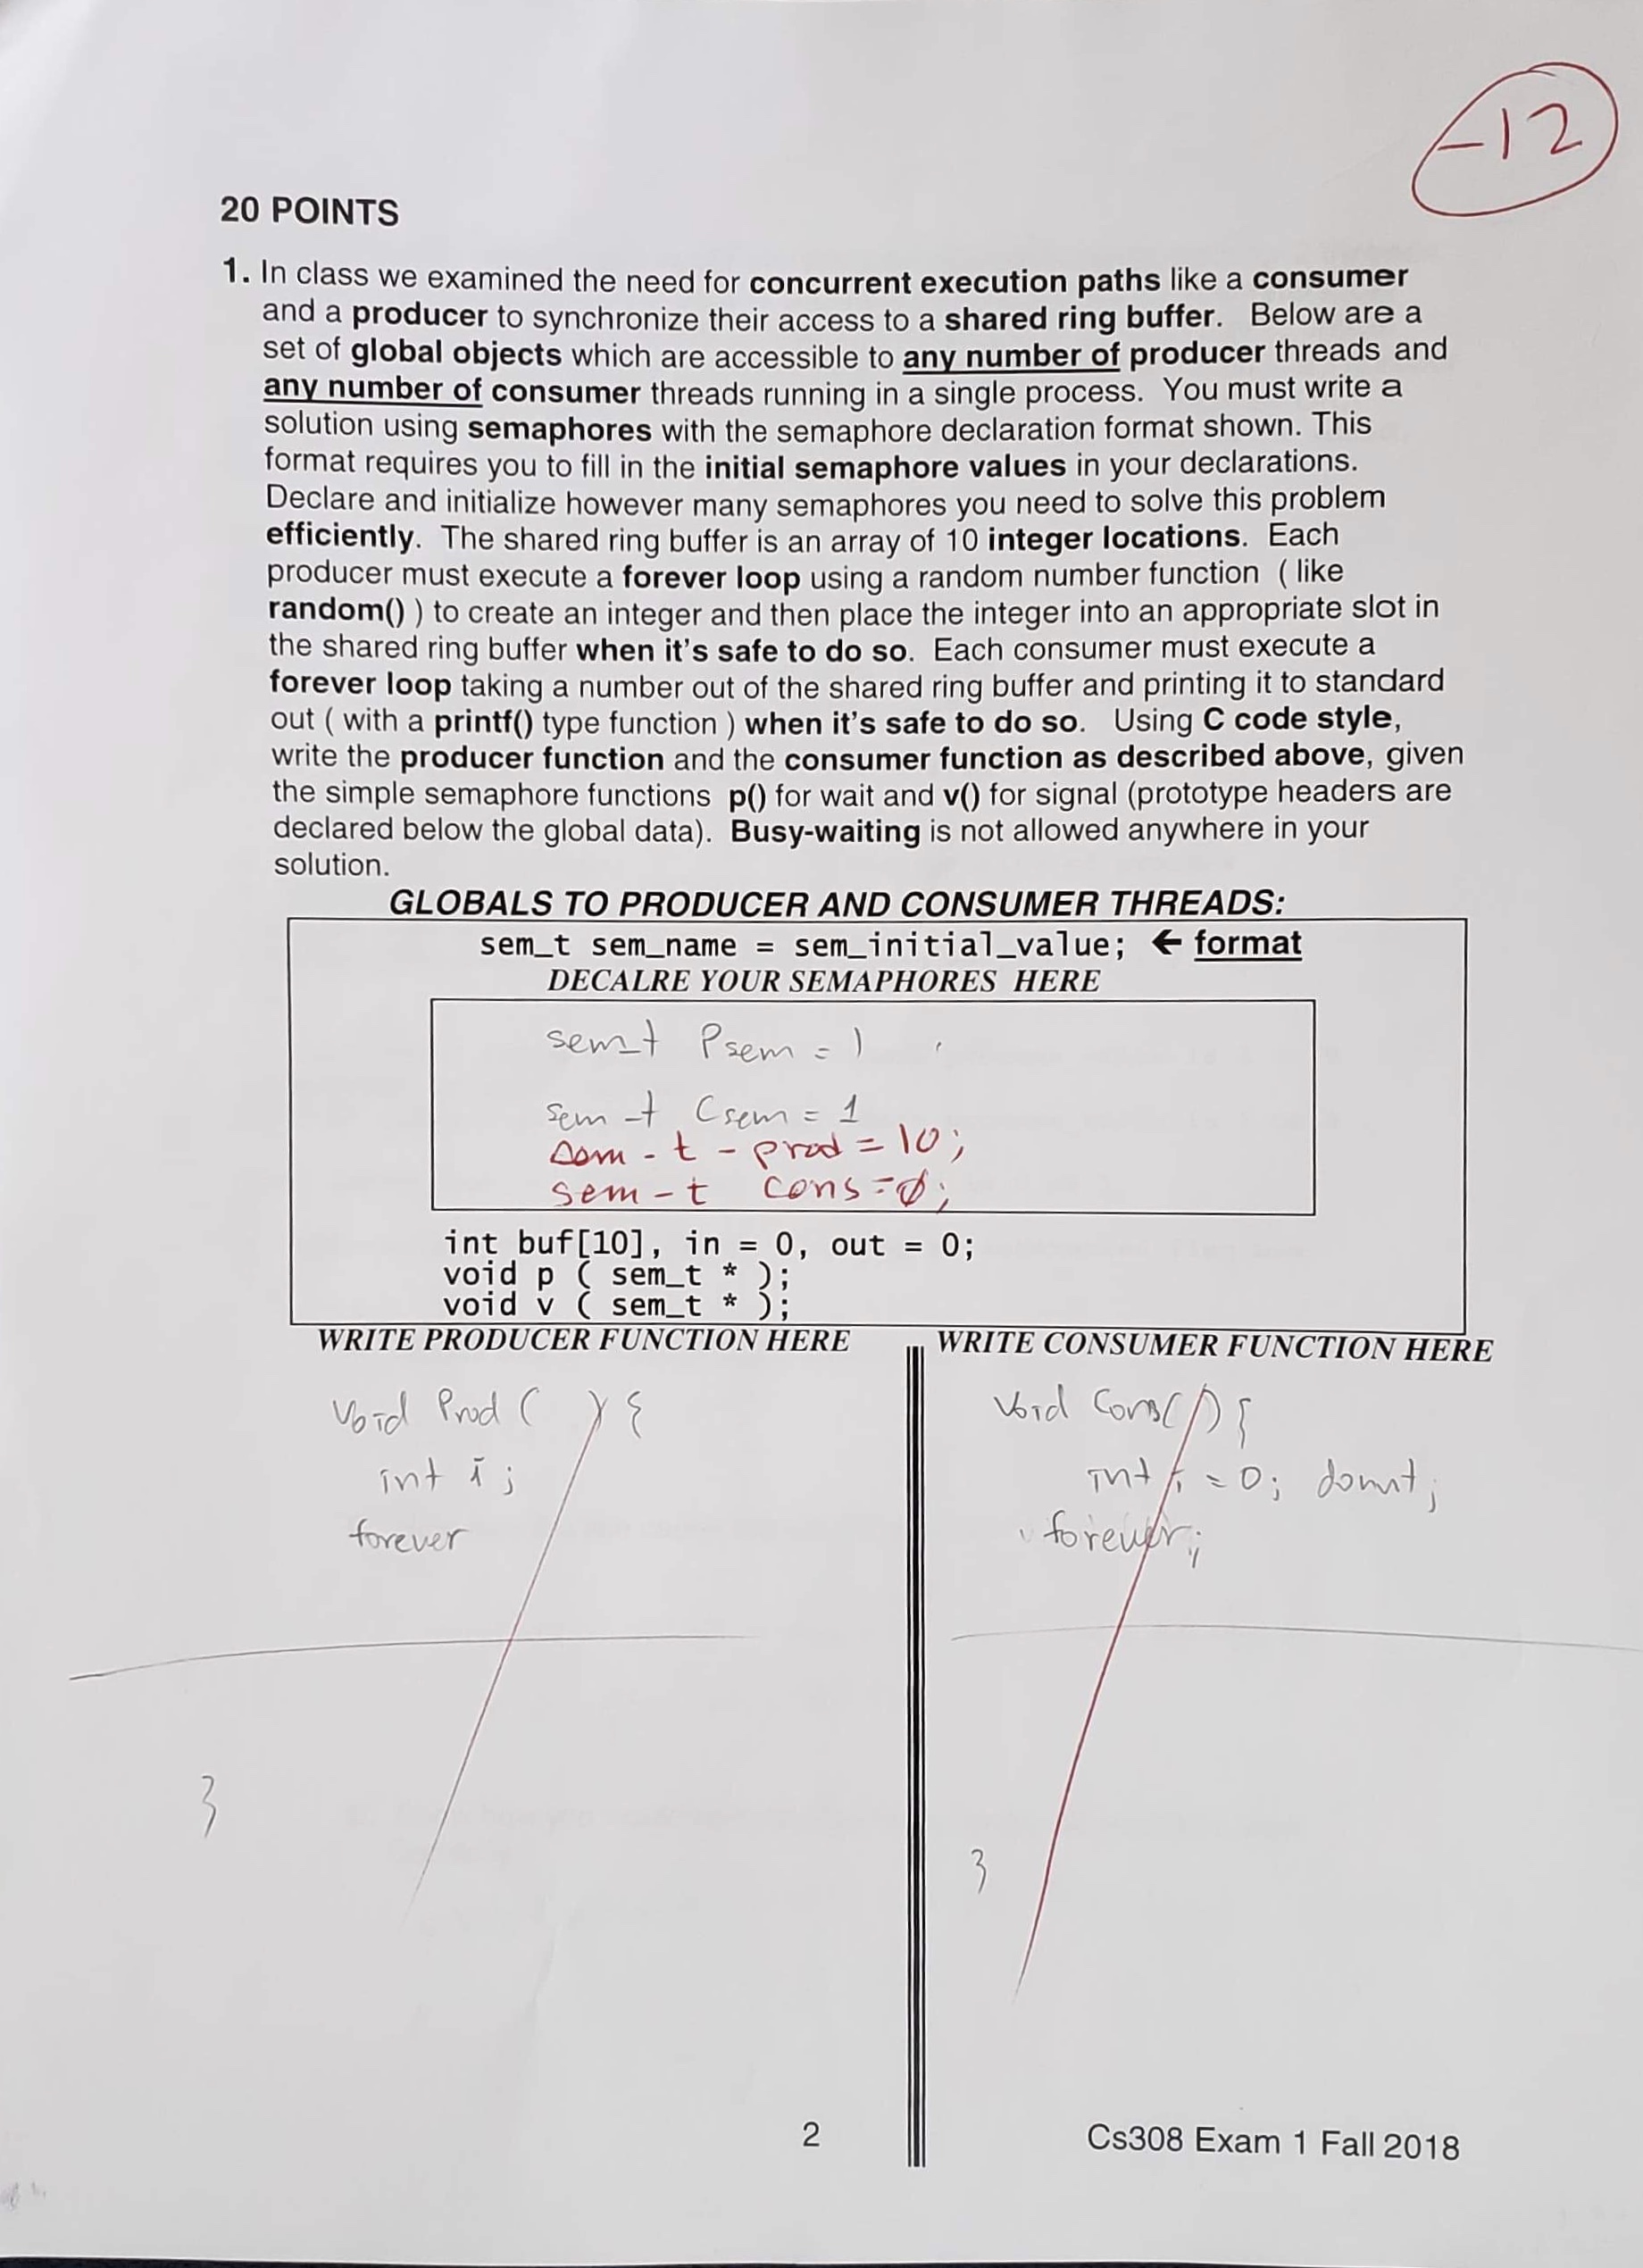 -12
20 POINTS
1. In class we examined the need for concurrent execution paths like a consumer
and a producer to synchronize their access to a shared ring buffer. Below are a
set of global objects which are accessible to any number of producer threads and
any number of consumer threads running in a single process. You must write a
solution using semaphores with the semaphore declaration format shown. This
format requires you to fill in the initial semaphore values in your declarations.
Declare and initialize however many semaphores you need to solve this problem
efficiently. The shared ring buffer is an array of 10 integer locations. Each
producer must execute a forever loop using a random number function ( like
random() ) to create an integer and then place the integer into an appropriate slot in
the shared ring buffer when it's safe to do so. Each consumer must execute a
forever loop taking a number out of the shared ring buffer and printing it to standard
out ( with a printf() type function ) when it's safe to do so. Using C code style,
write the producer function and the consumer function as described above, given
the simple semaphore functions p() for wait and v() for signal (prototype headers are
declared below the global data). Busy-waiting is not allowed anywhere in your
solution.
GLOBALS TO PRODUCER AND CONSUMER THREADS:
sem_t sem_name = sem_initial_value; ← format
DECALRE YOUR SEMAPHORES HERE
sem_t Psem = 1
sem_t Csem = 1
sem-t-prod=10;
sem-t cons=0;
int buf[10], in = 0, out = 0;
void p ( sem_t * );
void v ( sem_t * );
WRITE PRODUCER FUNCTION HERE
void Prod ( ) {
int i;
forever
}
WRITE CONSUMER FUNCTION HERE
void Cons() {
int i = 0;
forever;
}
2
Cs308 Exam 1 Fall 2018